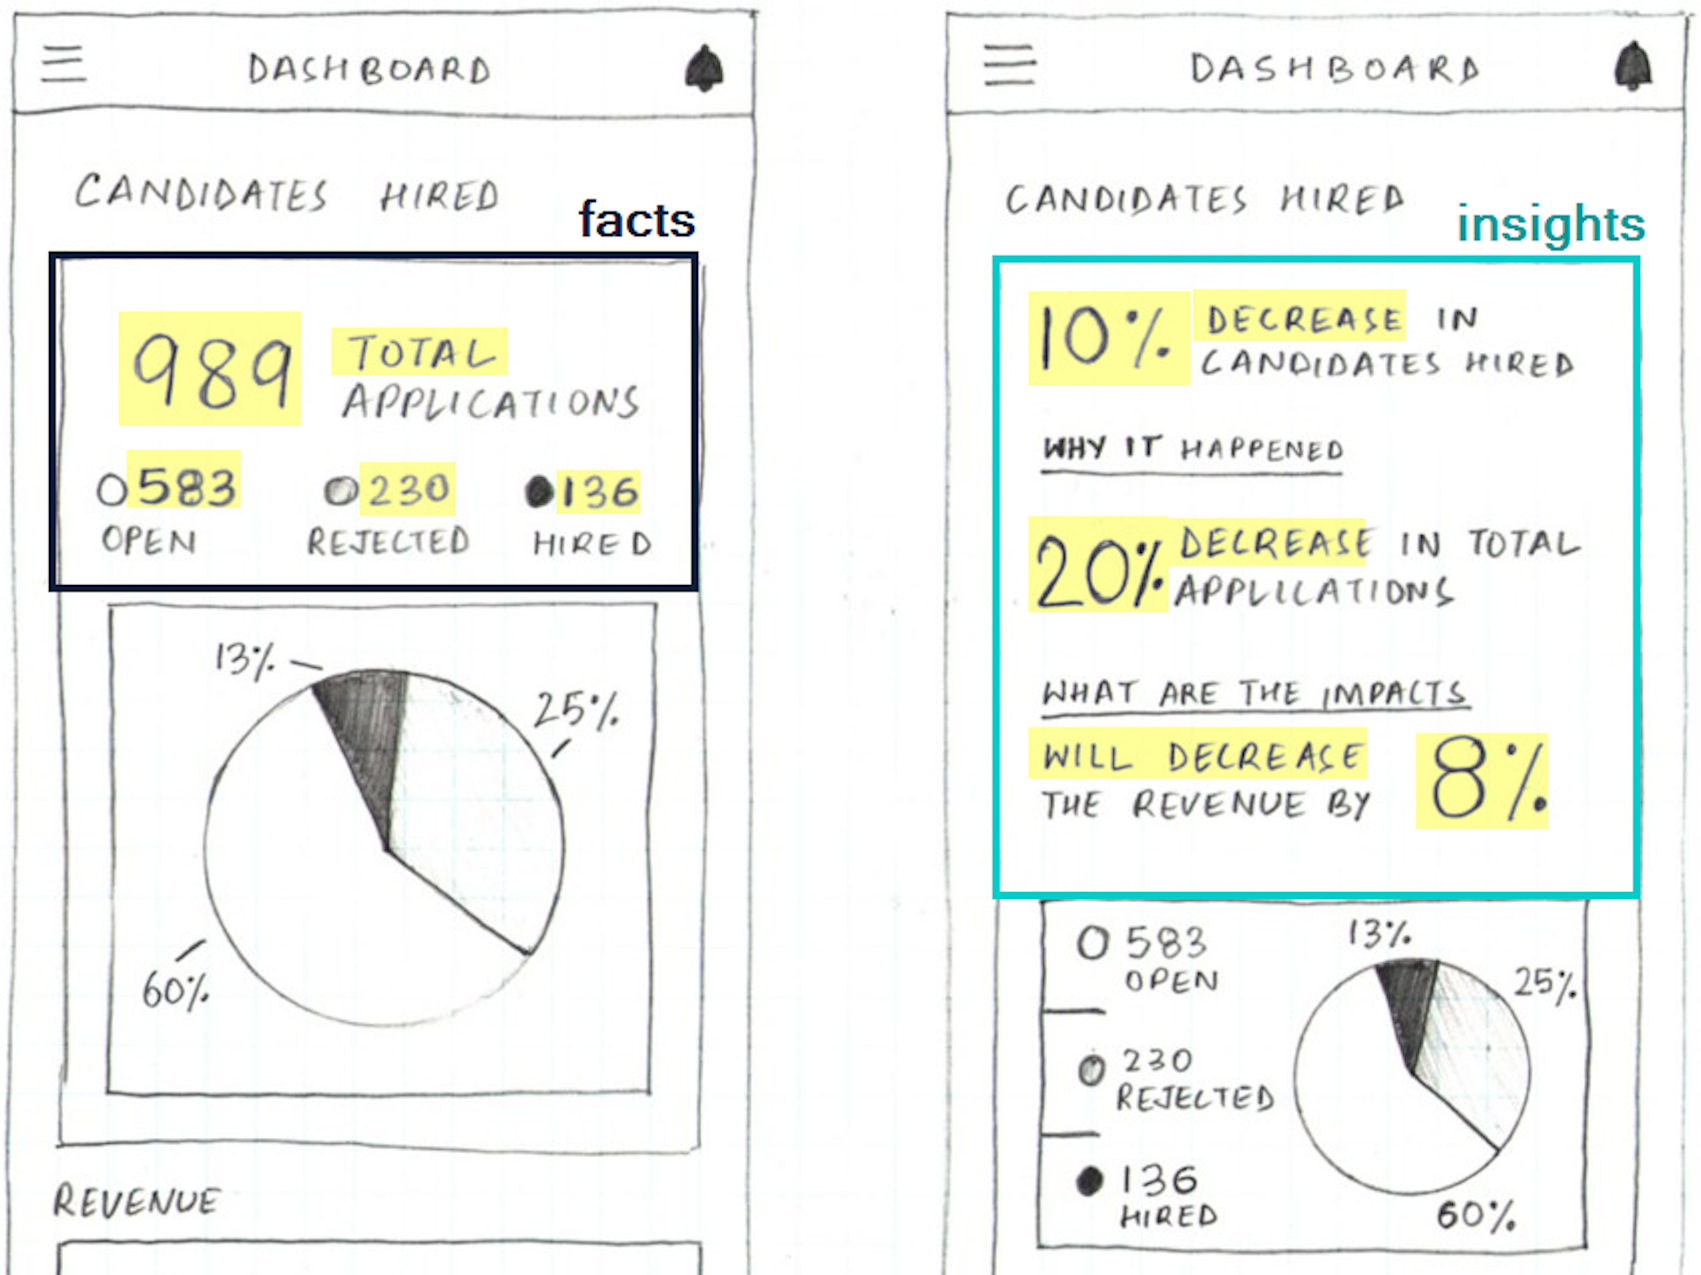 DASHBOARD
CANDIDATES HIRED
facts
989 TOTAL
APPLICATIONS
583 230 136
OPEN REJECTED HIRED
13%
25%
60%
REVENUE
DASHBOARD
CANDIDATES HIRED
insights
10% DECREASE IN
CANDIDATES HIRED
WHY IT HAPPENED
20% DECREASE IN TOTAL
APPLICATIONS
WHAT ARE THE IMPACTS
WILL DECREASE 8%
THE REVENUE BY
583
OPEN
230
REJECTED
136
HIRED
13%
25%
60%